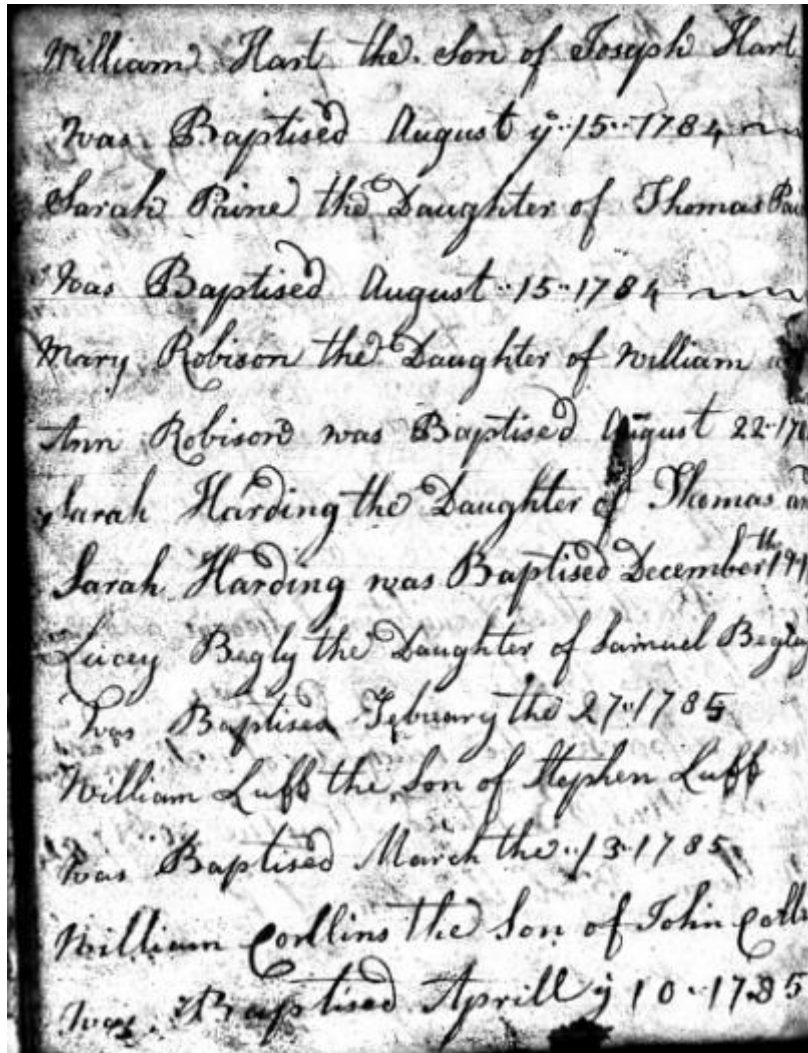 William Hart the Son of Joseph Hart
Was Baptised August ye 15 1784
Sarah Paine the Daughter of Thomas
Was Baptised August 15 1784
Mary Robison the Daughter of William
Ann Robison was Baptised August 22
Sarah Harding the Daughter of Thomas
Sarah Harding was Baptised December
Lucey Begly the Daughter of Samuel Begly
Was Baptised Febuary the 27 1785
William Luff the Son of Stephen Luff
Was Baptised March the 13 1785
William Corllins the Son of John
Was Baptised Aprill y 10 1785